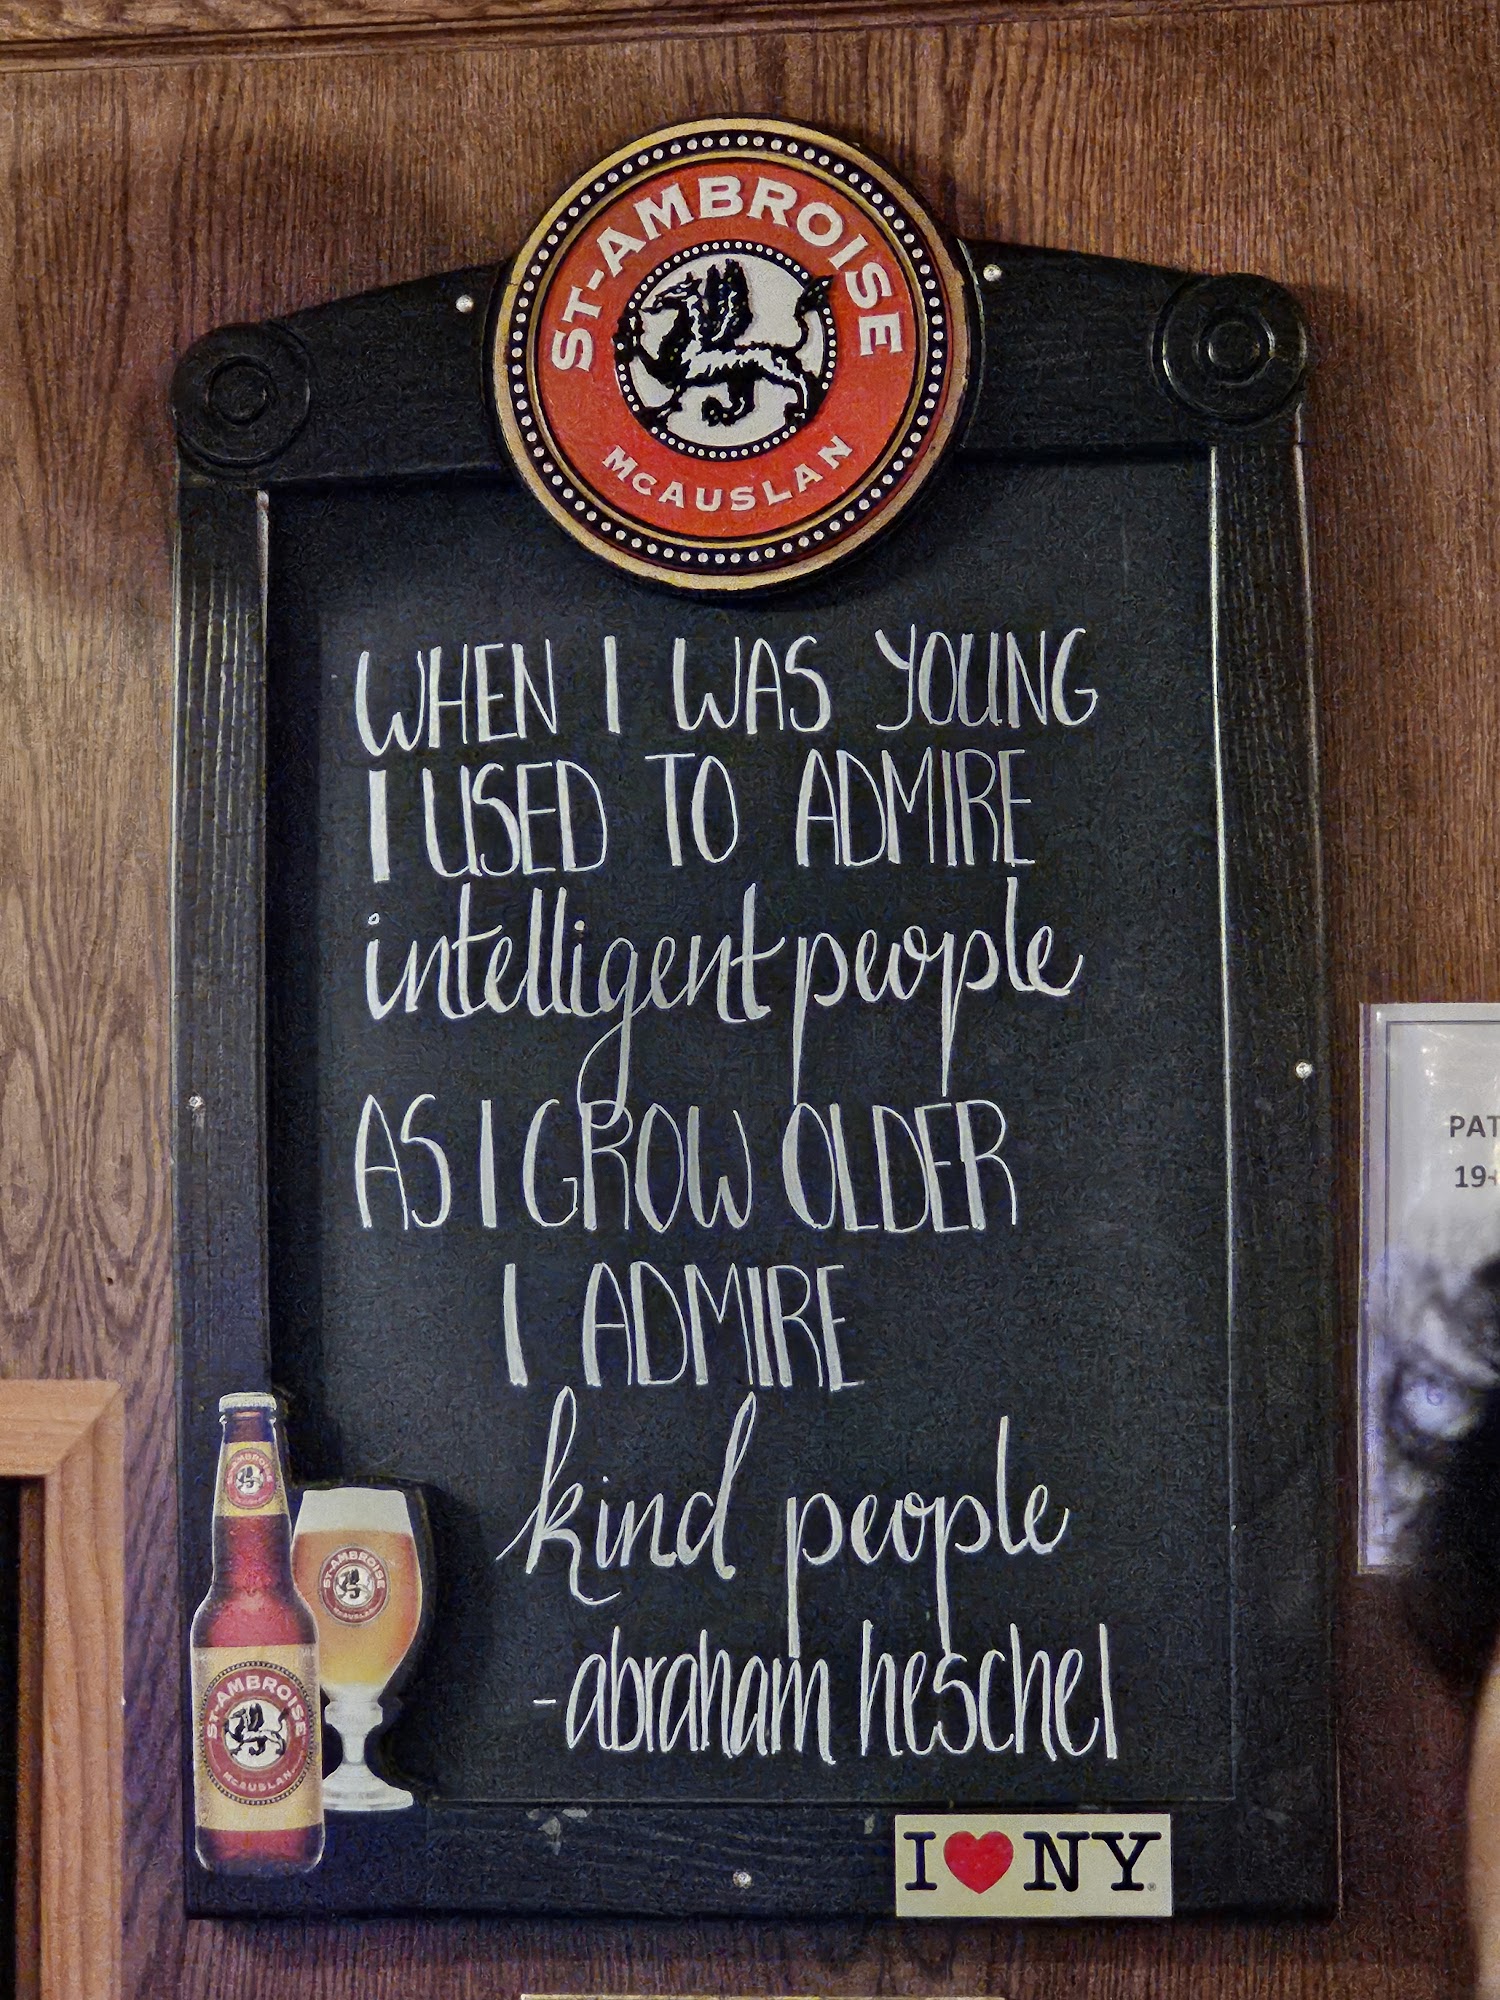 ST-AMBROISE
McAUSLAN
WHEN I WAS YOUNG
I USED TO ADMIRE
intelligent people
AS I GROW OLDER
I ADMIRE
kind people
-abraham heschel
ST-AMBROISE
ST-AMBROISE
McAUSLAN
I ♥ NY
PAT